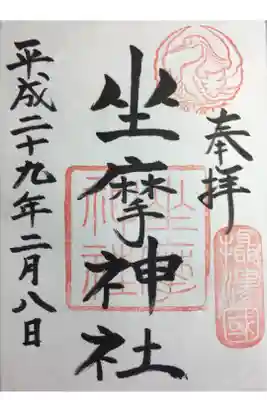 奉拝
攝津國
坐摩神社
坐摩神社
平成二十九年二月八日